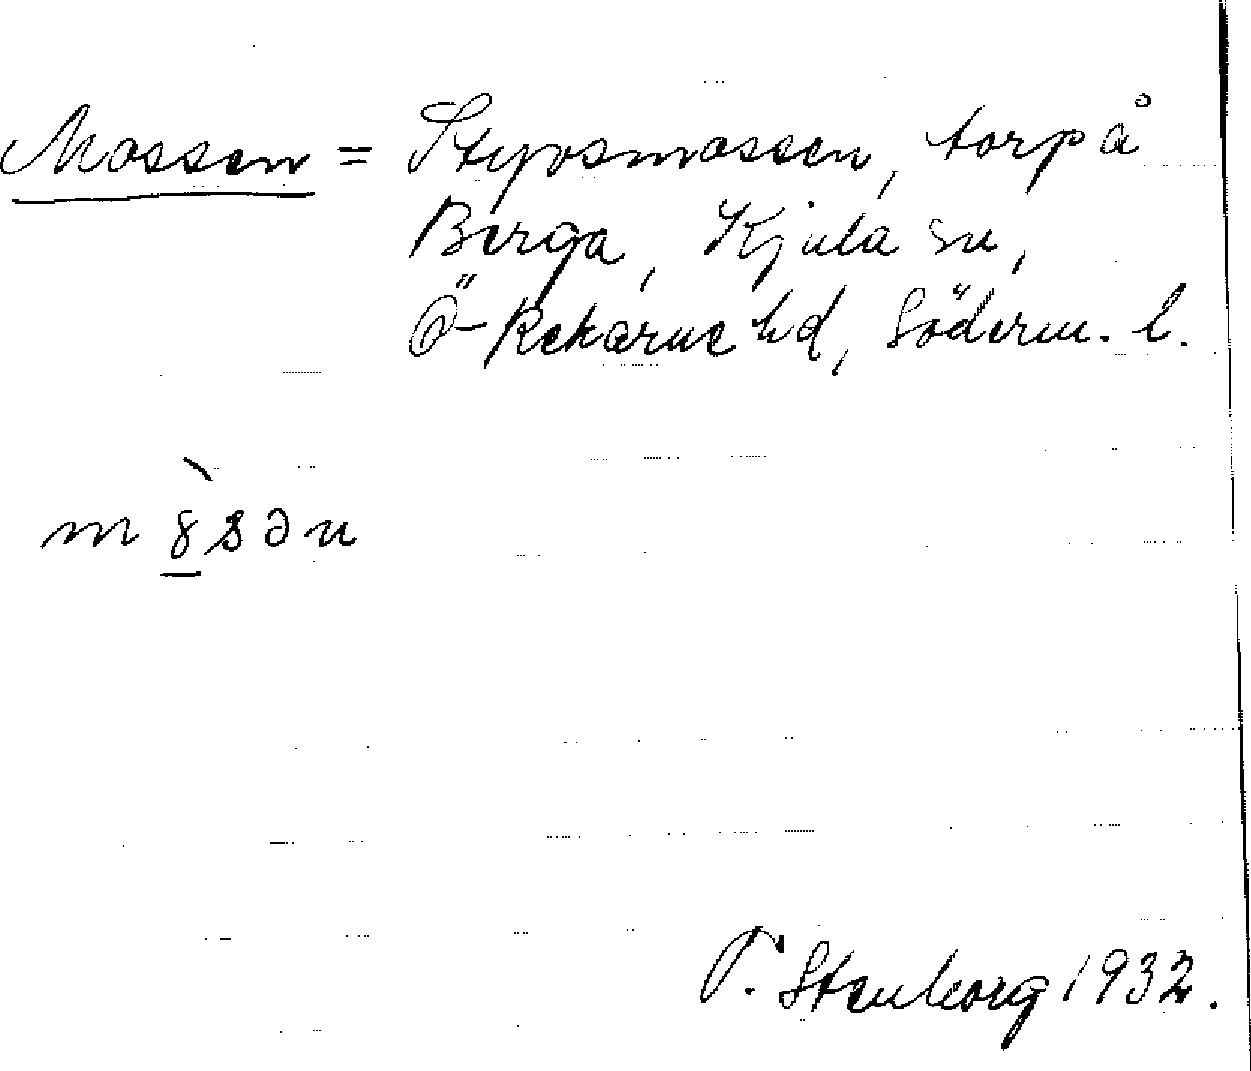 Mossen = Styvsmossen, torp å
Berga, Kjula sn,
Ö-Rekarne hd, Söderm. l.
m ɤ̀s ə n
T. Stenborg 1932.